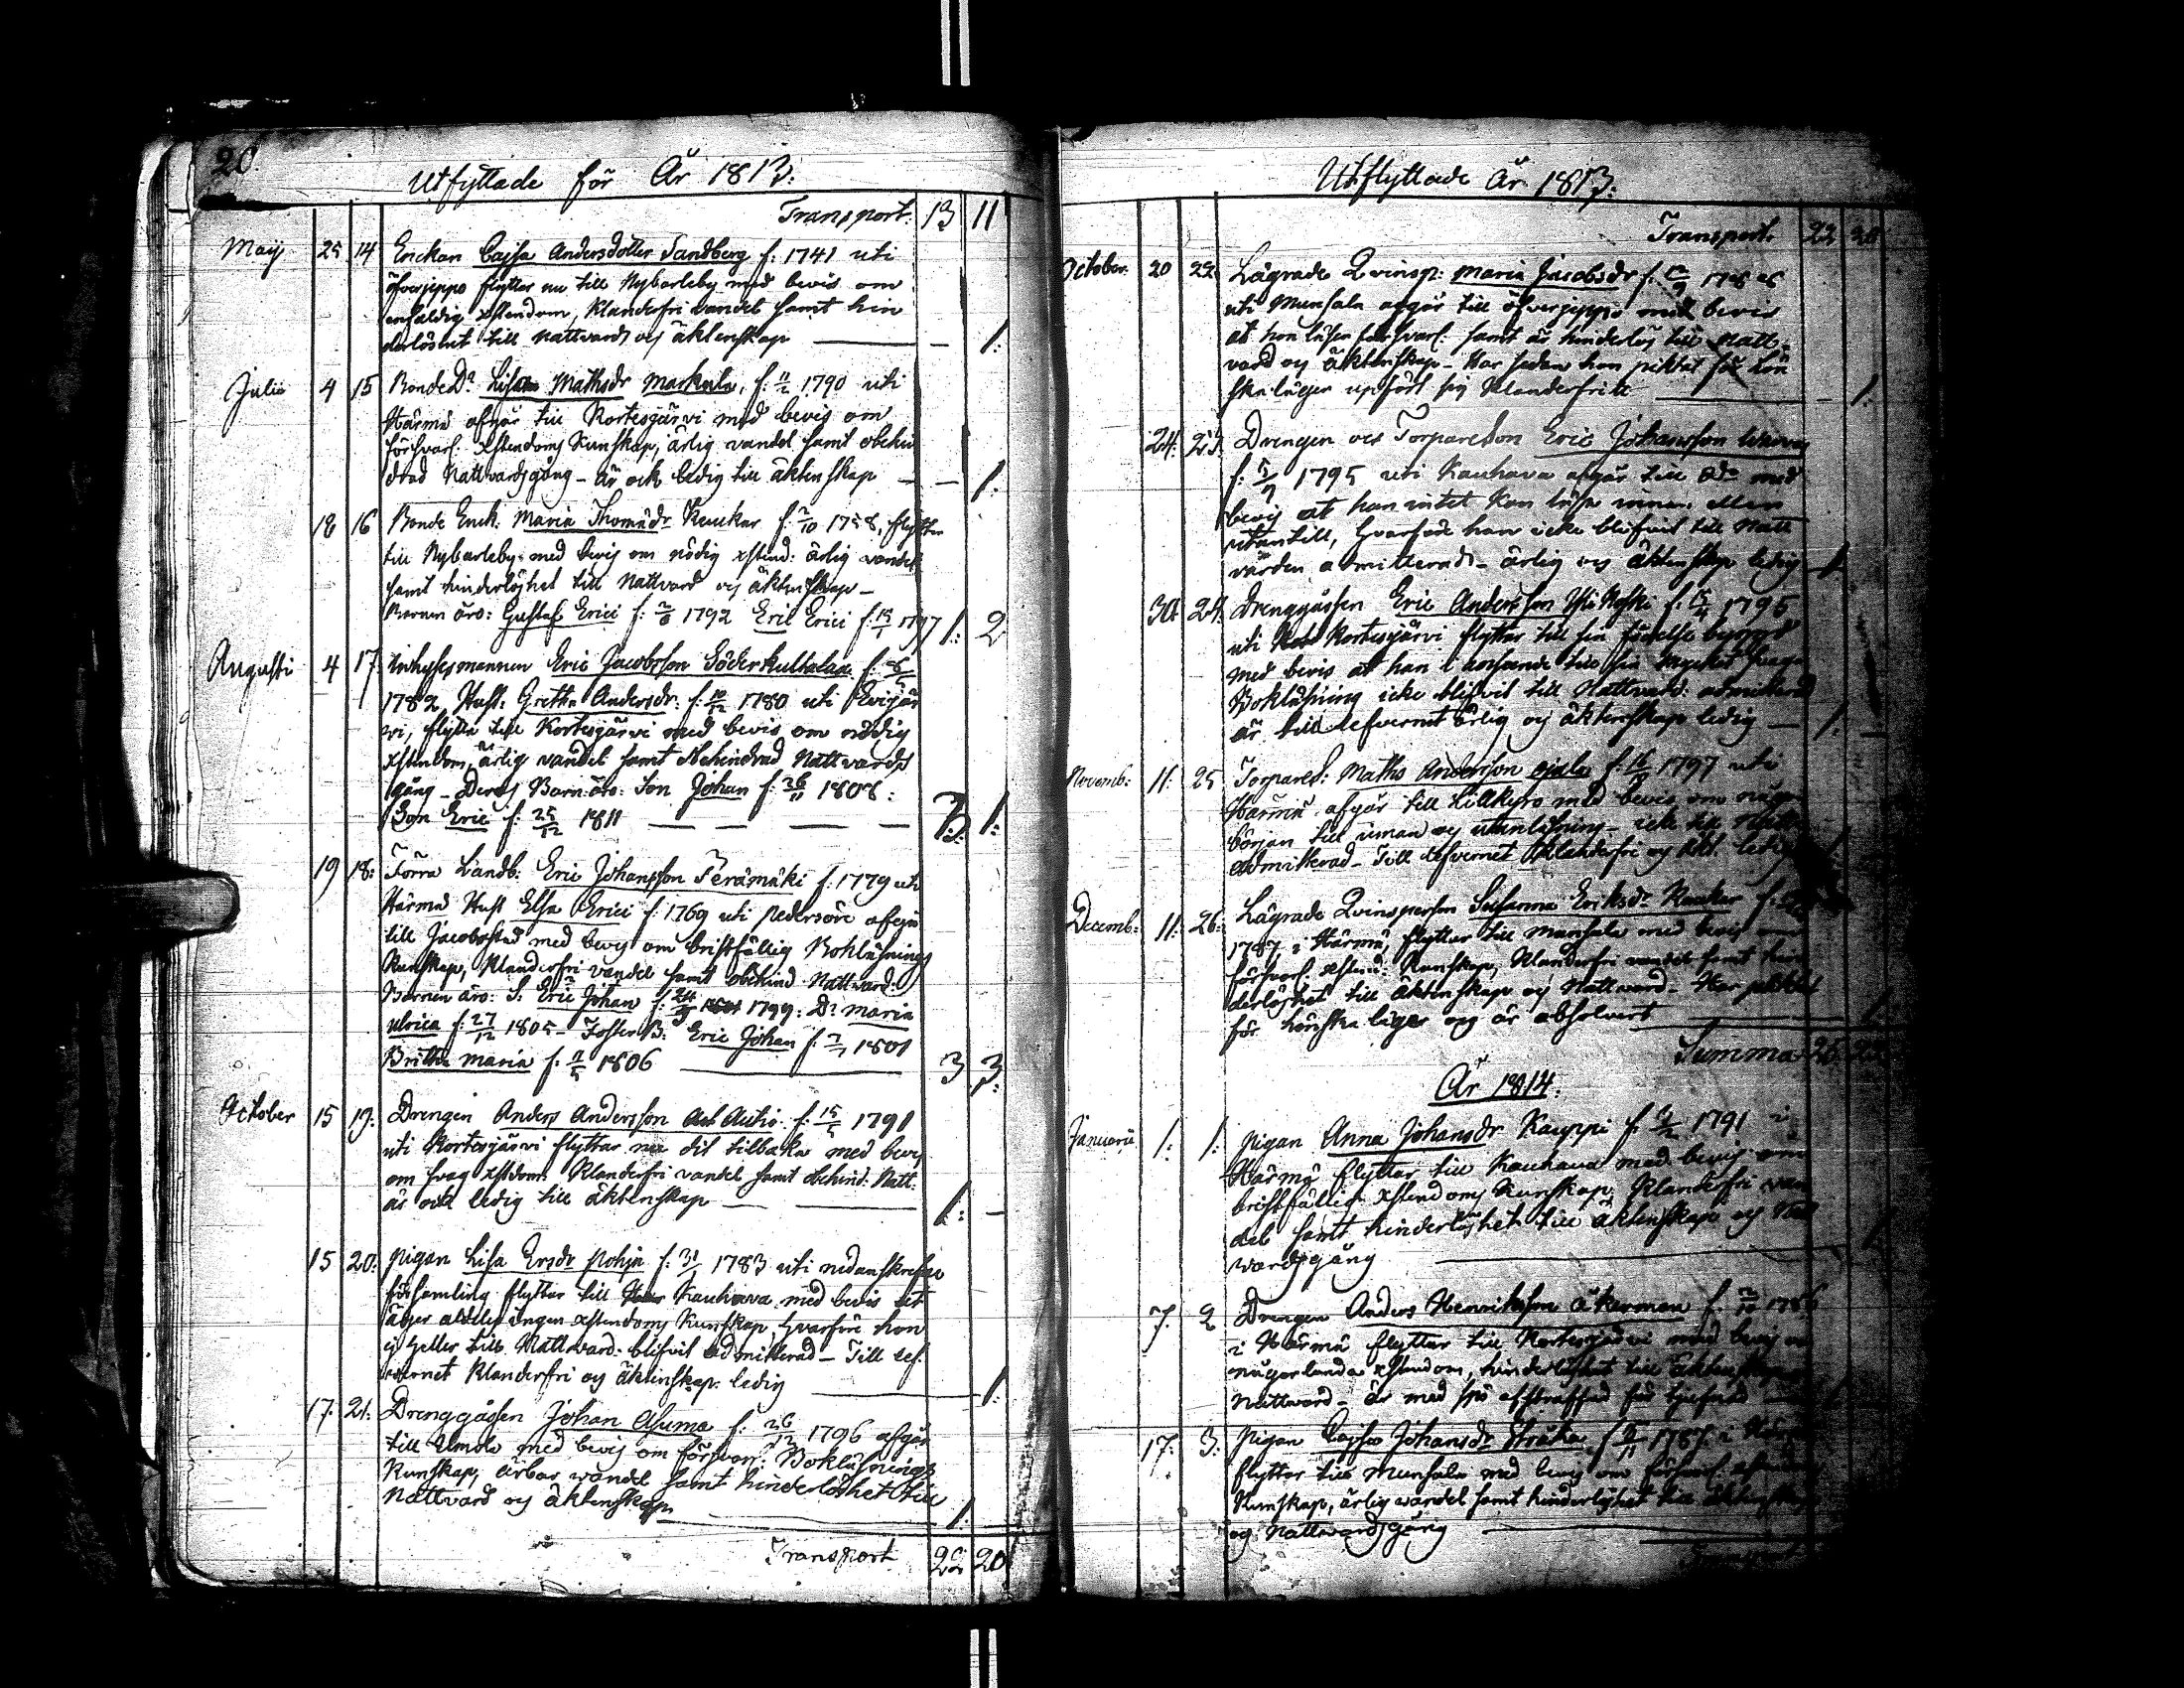 20.
Utflyttade för År 1813:
Transport. 13 11
Maij 25 14 Enckan Cajsa Andersdotter Sandberg f: 1741 uti
öfverjeppo flyttar nu till Nybarleby med bevis om
enfaldig xstendom, Klanderfri vandel samt hin
derlöshet till nattvard och äktenskap — — 1:
Julii 4 15 Bonde Dr Lisa Mathsdr Markula, f: 11/2 1790 uti
Härmä afgår till Kortesjärvi med bevis om
försvarl. xstendoms Kunskap, ärlig vandel samt obehin
drad Nattvardsgång - är ock ledig till äktenskap — — 1:
18 16 Bonde Enck: Maria Thomædr Kaukar f: 2/10 1758, flyttar
till Nybarleby med bevis om nödig xstend: ärlig vandel
samt hinderlöshet till Nattvard och äktenskap -
Barnen äro: Gustaf Erici f: 1792 Eric Erici f: 1797 1: 2
Augusti 4 17. Inhysesmannen Eric Jacobsson Söderkultalax f:
1782, Hust: Gretha Andersdr: f: 10/12 1780 uti Evijär
vi, flytta till Kortesjärvi med bevis om nödig
xstendom, ärlig vandel samt Obehindrad Nattvards
gång - Deras Barn äro: Son Johan f: 26/11 1808:
Son Eric f: 25/12 1811 — — — — 3 1:
19 18: Förra Landb: Eric Johansson Perämäki f: 1779 uti
Härmä Hust Elsa Erici f: 1769 uti Pedersöre afgå
till Jacobstad med bevis om bristfällig Bokläsnings
Kunskap, Klanderfri vandel samt obehind Nattvard:
Barnen äro: S: Eric Johan f: 24/3 1799: Dr Maria
Ulrica f: 27/12 1805 - Foster B: Eric Johan f: 1801
Britha Maria f: 11/5 1806 — 3 3:
October 15 19: Drengen Anders Andersson Autio f: 15/5 1791
uti Kortesjärvi flyttar nu dit tilbaka med bevis
om svag xstdom: Klanderfri vandel samt Obehind: Natt:
är ock ledig till äktenskap — — 1: —
15 20: Pigan Lisa Ersdr Pohja f: 31/1 1783 uti nedanskrefne
församling flyttar till Kauhava med bevis at
äger aldeles ingen xstendoms Kunskap, hvarföre hon
ej heller till Nattvard: blifvit admitterad - Till lef:
vernet Klanderfri och äktenskap: ledig — 1:
17. 21: Drenggåssen Johan Asuma f: 26/12 1796 afgår
till Umola med bevis om försvarl: Bokläsnings
Kunskap, ärbar vandel samt hinderlöshet till
Nattvard och äktenskap — 1.
Transport 22 20
Utflyttade År 1813:
Transport. 22 20
October. 20 22: Lägrade Qvinsp: Maria Jacobsdr f:
uti Munsala afgår till öfverjeppo med bevis
at hon läser försvarl: samt är hinderlös till Natt-
vard och äktenskap - Har sedan hon pliktat för Lön
ska läger upfört sig Klanderfritt — 1:
24. 23: Drengen och Torpareson Eric Johansson
f: 1795 uti Kauhava afgår till Odo med
bevis at han intet kan läsa innan eller
utantill, hvarföre han icke blifvit till Natt
varden admitterad - ärlig och äktenskap ledig 1
30. 24. Drenggåssen Eric Andersson f: 15/4 1795
uti Kortesjärvi flyttar till sin födelse bygd
med bevis at han i anseende till sin mycket svaga
Bokläsning icke blifvit till Nattvard: admitterad
är till lefvernet ärlig och äktenskap ledig — 1: —
Novemb: 11. 25 Torpares: Maths Andersson Ojala f: 16/8 1797 uti
Härmä afgår till Lillkyro med bevis om någon
början till innan och utanläsning - icke till Natt:
admitterad - Till lefvernet Klanderfri och äkt. ledig
Decemb: 11: 26: Lägrade Qvinsperson Susanna Eriksdr Kaukar f:
1787 i Härmä, flyttar till Munsala med bevis om
försvarl. xstend: Kunskap, Klanderfri vandel samt hin
derlöshet till äktenskap och Nattvard - Har pliktat
för Lönska läger och är absolverat — 1
Summa
År 1814.
Januarii 1: 1: Pigan Anna Johansdr Kauppi f: 1791 i
Härmä flyttar till Kauhava med bevis om
bristfällig xstendoms Kunskap, Klanderfri van
del samt hinderlöshet till äktenskap och Natt
vardsgång —
7. 2 Drengen Anders Henriksson Åkerman f: 1786
i Härmä flyttar till Kortesjärvi med bevis om
någorlunda xstendom, hinderlöshet till äktenskap
Nattvard - är med spö afstraffad för tjufnad
17: 3: Pigan Cajsa Johansdr Stråka f: 1787 i Härmä
flyttar till Munsala med bevis om försvarl. xstendoms
Kunskap, ärlig vandel samt hinderlöshet till äktenskap
och Nattvardsgång —